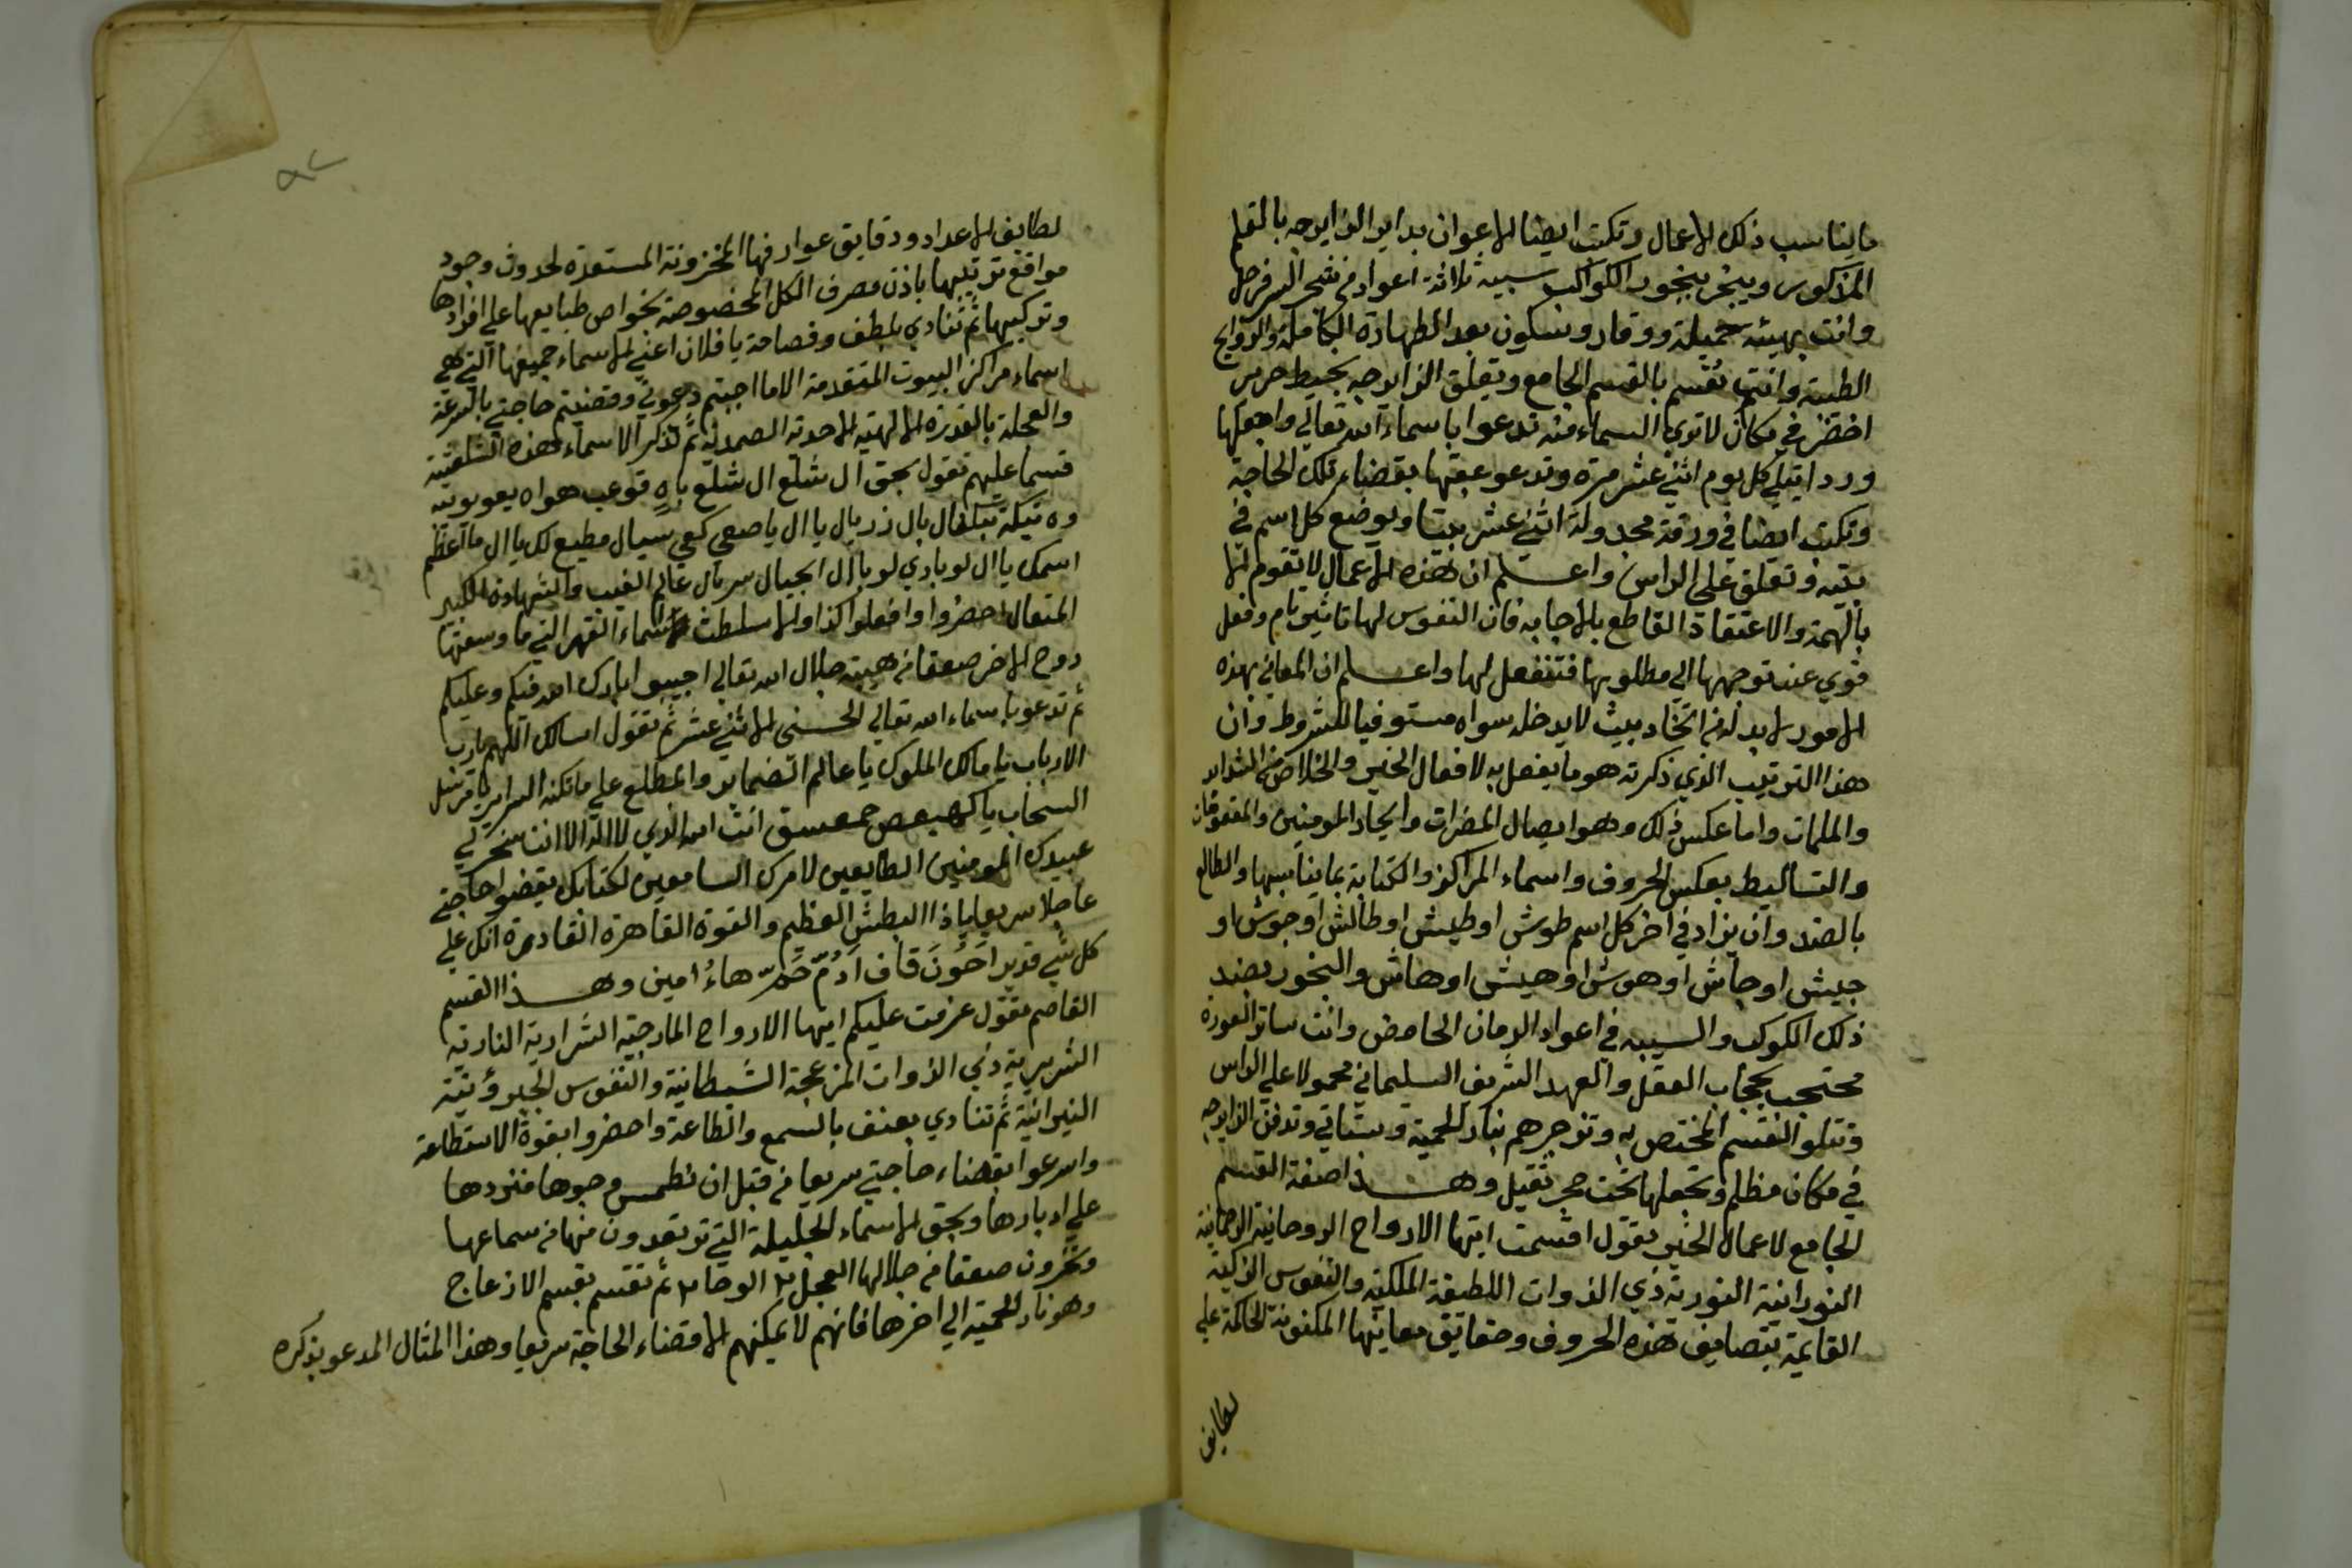 ما يناسب ذلك الاعمال وتكتب ايضا الاعوان بداير الزايرجه بالقلم
المذكور ويبخر ببخور الكواكب سبيه ثلاثة اعواد من شجر السفرجل
وانت بهيئه جميلة ووقار وسكون بعد الطهارة الكاملة والروايح
الطيبه وانت تقسم بالقسم الجامع وتعلق الزايرجه بخيط حرير
اخضر في مكان لا تري السماء منه تدعوا باسماء الله تعالي واجعلها
وردا يتلي كل يوم اثني عشر مرة وتدعو عقبها بقضاء تلك الحاجة
وتكتب ايضا في ورقة مجدولة اثني عشر بيتا ويوضع كل اسم في
بيته وتعلق علي الراس واعلم ان هذه الاعمال لا تقوم الا
بالهمة والاعتقاد القاطع بالاجابه فان النفوس لها تاثير تام وفعل
قوي عند توجهها الي مطلوبها فتنفعل لها واعلم ان المعاني بهذه
الامور لا بد له من اتخاذ بيت لا يدخله سواه مستوفيا للشروط وان
هذا الترتيب الذي ذكرته هو ما يفعل به لافعال الخير والخلاص من الشدايد
والملمات واما عكس ذلك وهو ايصال المضرات وايجاد المومنين والمعقوقان
والتساليط بعكس الحروف واسماء المراكز والكتابة بما يناسبها والطالع
بالضد وان يزاد في اخر كل اسم طوش او طيش او طالش او جوش او
جيش او جاش او هوش او هيش او هاش والبخور بضد
ذلك الكوكب والسيبه في اعواد الرمان الحامض وانت ساتر العورة
محتجب بحجاب العقل والعهد الشريف السليماني محمولا علي الراس
وتتلو القسم المختص به وتزجرهم بنار الحمية وستاتي وتدفن الزايرجه
في مكان مظلم وتجعلها تحت حجر ثقيل وهذا صفة القسم
الجامع لاعمال الخير تقول اقسمت ايتها الارواح الروحانية الرحمانية
النورانية النورية ذي الذوات اللطيفة الملكية والنفوس الزكية
القايمة بتصاريف هذه الحروف وحقايق معانيها المكنونة الحاكمة علي
لطايف
٩٢
لطايف الاعداد ودقايق عوارفها المخزونة المستعدة لحدوث وجود
مواقع ترتيبها باذن مصرف الكل المخصوصة بخواص طبايعها علي افرادها
وتركيبها ثم تنادي بلطف وفصاحة يا فلان اعني الاسماء جميعها التي هي
اسماء مراكز البيوت المتقدمة الا ما اجبتم دعوتي وقضيتم حاجتي بالسرعة
والعجلة بالقدرة الالهيه الاحدية الصمدية ثم تذكر الاسماء هذه
قسما عليهم تقول بحق ال شلع ال شلع ياه قوعب هواه يعوبوبيه
وه تيكة بتكفال بال زريال يا ال يا صعي كعي سيال مطيع لك يا ال ما اعظم
اسمك يا ال لوبادي لوبا ال ابجيال سريال عالم الغيب والشهادة الكبير
المتعال احضروا وافعلوا كذا والا سلطت اسماء القهر التي ما وسعتها
روح الا خر صعقا من هيبة جلال الله تعالي اجيبوا بارك الله فيكم وعليكم
ثم تدعو باسماء الله تعالي الحسني الاثني عشر ثم تقول اسالك اللهم يا رب
الارباب يا مالك الملوك يا عالم الضماير والمطلع علي ما تكنه السراير يا مرسل
السحاب يا كهيعص حمعسق انت الله الذي لا اله الا انت سخر لي
عبيدك المومنين الطايعين لامرك السامعين لكتابك يقضوا حاجتي
عاجلا سريعا يا ذا البطش العظيم والقوة القاهرة القادرة انك علي
كل شي قدير احون قاف ادم حم هاء امين وهذا القسم
القاصم تقول عزمت عليكم ايتها الارواح المارجية الشرارية النارية
الشريرية ذي الذوات المزعجة الشيطانية والنفوس الجبروتية
النيرانية ثم تنادي بعنف بالسمع والطاعة واحضروا بقوة الاستطاعة
واسرعوا بقضاء حاجتي سريعا من قبل ان نطمس وجوها فنردها
علي ادبارها وبحق الاسماء الجليلة التي ترتعدون منها من سماعها
وتخرون صعقا من جلالها العجل ٢ الوحا ٢ ثم تقسم بقسم الازعاج
وهو نار الحمية الي اخرها فانهم لا يمكنهم الا قضاء الحاجة سريعا وهذا المثال المدعو بذكره